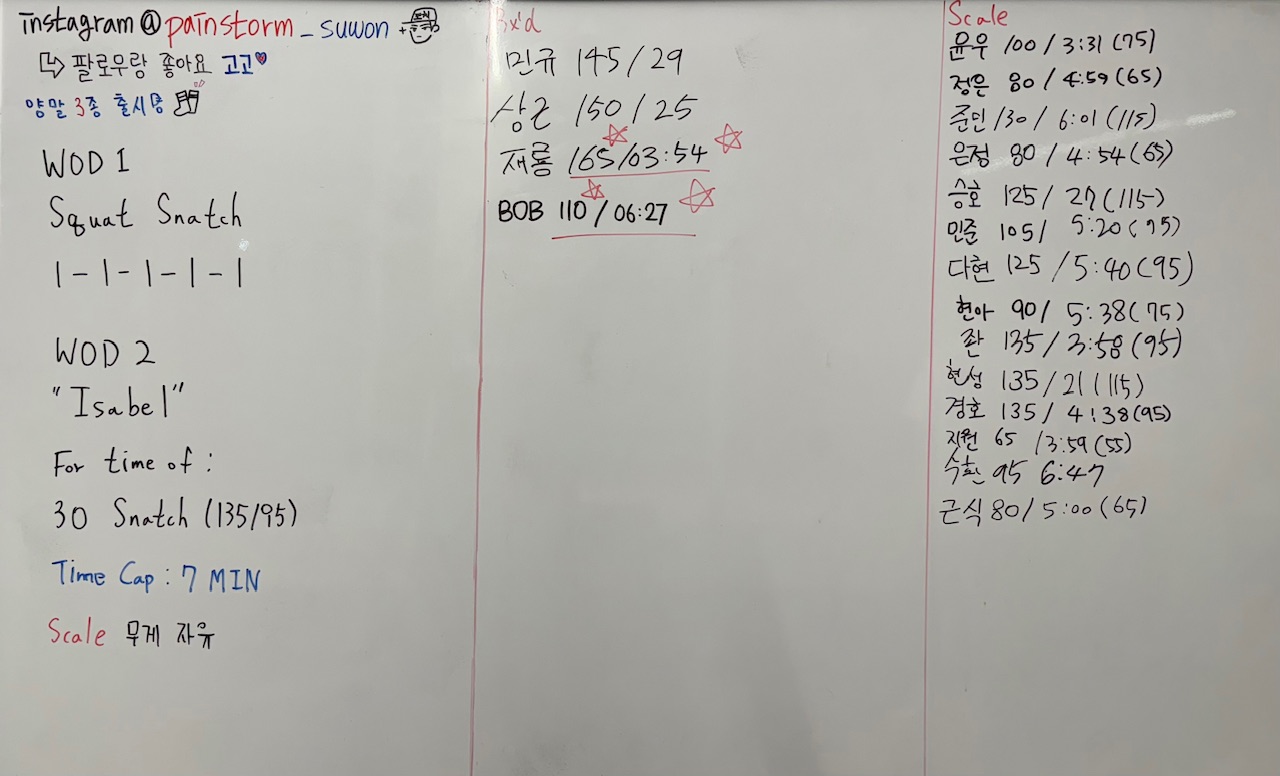 instagram @ painstorm_suwon
팔로우랑 좋아요 고고
양말 3종 출시중
WOD 1
Squat Snatch
1-1-1-1-1
WOD 2
"Isabel"
For time of :
30 Snatch (135/95)
Time Cap : 7 MIN
Scale 무게 자유
Rx'd
민규 145/29
상근 150/25
재룡 165/03:54
BOB 110/06:27
Scale
윤우 100/3:31(75)
정은 80/4:59(65)
준민 130/6:01(115)
은정 80/4:54(65)
승호 125/27(115)
민준 105/5:20(95)
다현 125/5:40(95)
현아 90/5:38(75)
좐 135/3:58(95)
현성 135/21(115)
경호 135/4:38(95)
지원 65/3:59(55)
수환 95 6:47
근식 80/5:00(65)